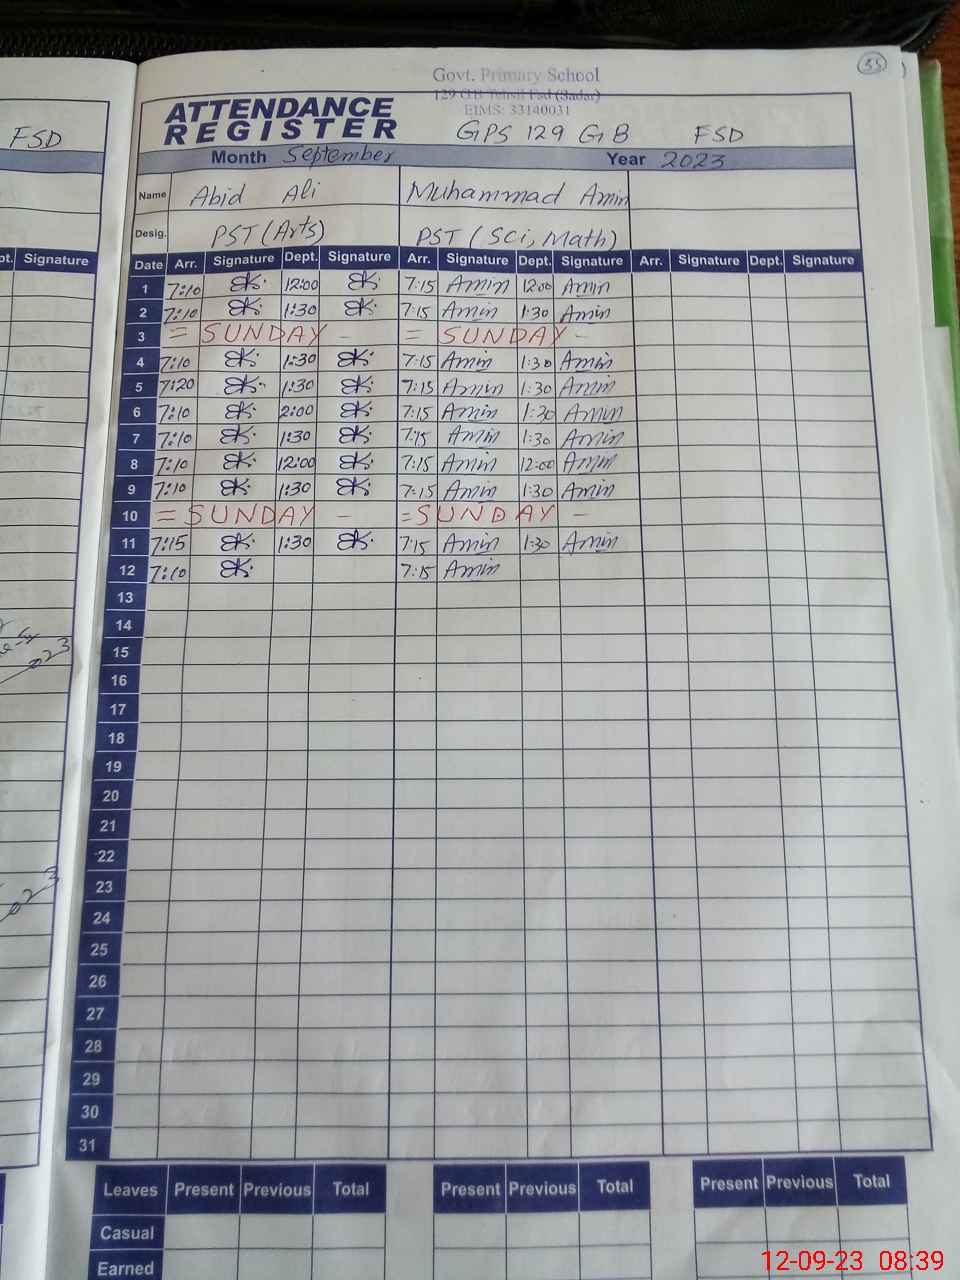 55
Govt. Primary School
129 G.B Tehsil Fsd (Sadar)
EIMS: 33140031
ATTENDANCE
REGISTER
GPS 129 GB FSD
FSD
Month September Year 2023
Name Abid Ali Muhammad Amin
Desig. PST (Arts) PST (Sci, Math)
pt. Signature
Date Arr. Signature Dept. Signature Arr. Signature Dept. Signature Arr. Signature Dept. Signature
1 7:10 12:00 7:15 Amin 12:00 Amin
2 7:10 1:30 7:15 Amin 1:30 Amin
3 = SUNDAY - = SUNDAY -
4 7:10 1:30 7:15 Amin 1:30 Amin
5 7:20 1:30 7:15 Amin 1:30 Amin
6 7:10 2:00 7:15 Amin 1:30 Amin
7 7:10 1:30 7:15 Amin 1:30 Amin
8 7:10 12:00 7:15 Amin 12:00 Amin
9 7:10 1:30 7:15 Amin 1:30 Amin
10 = SUNDAY - = SUNDAY -
11 7:15 1:30 7:15 Amin 1:30 Amin
12 7:10 7:15 Amin
13
14
15
16
17
18
19
20
21
22
23
24
25
26
27
28
29
30
31
Leaves Present Previous Total Present Previous Total Present Previous Total
Casual
Earned
12-09-23 08:39